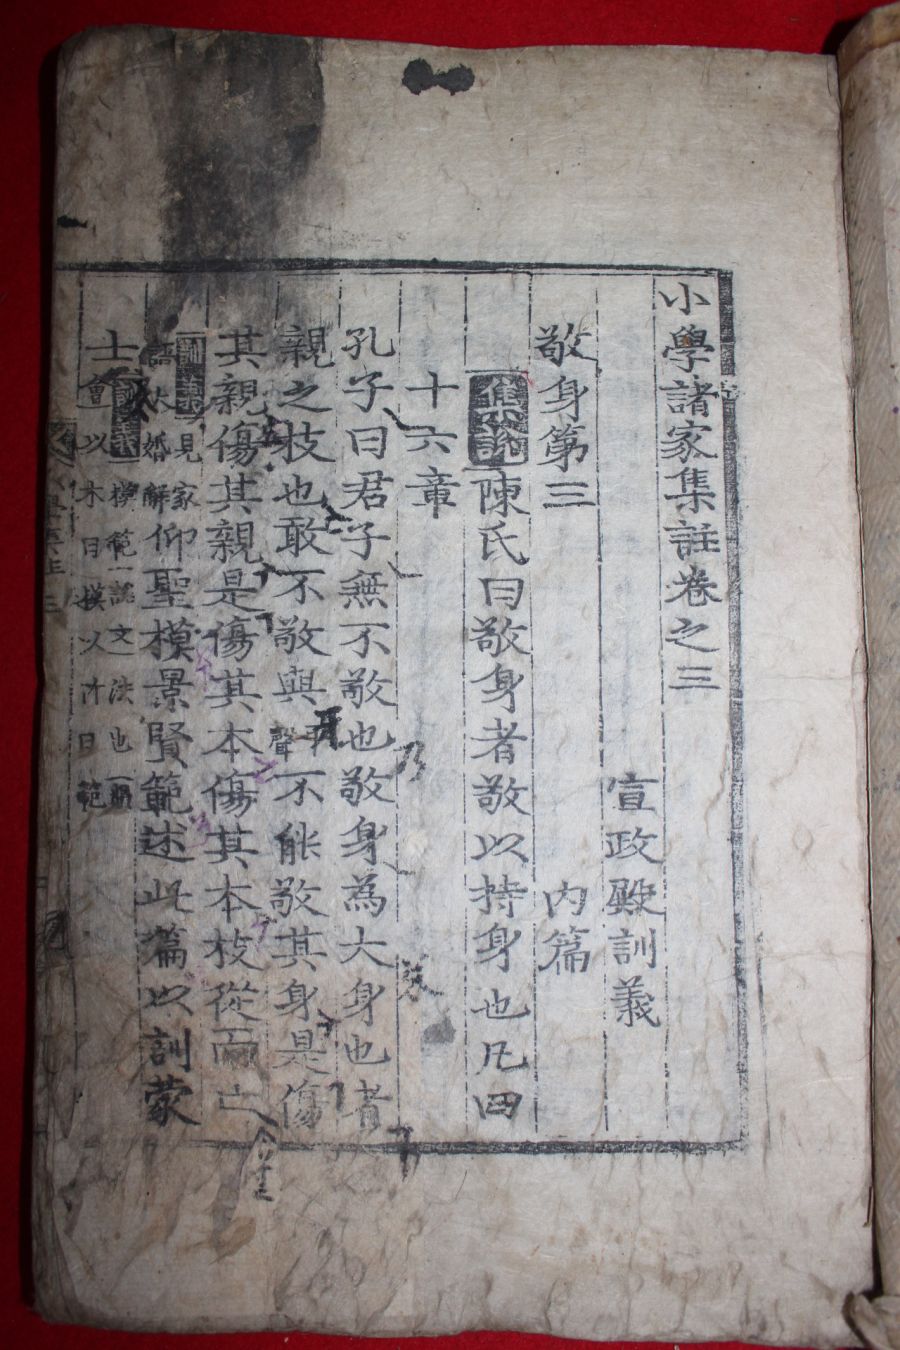 小學諸家集註卷之三
宣政殿訓義
敬身第三 內篇
集說 陳氏曰敬身者敬以持身也凡四
十六章
孔子曰君子無不敬也敬身爲大身也者
親之枝也敢不敬與平聲不能敬其身是傷
其親傷其親是傷其本傷其本枝從而亡
仰聖模景賢範述此篇以訓蒙
士
訓義 模範
以木曰模以竹曰範